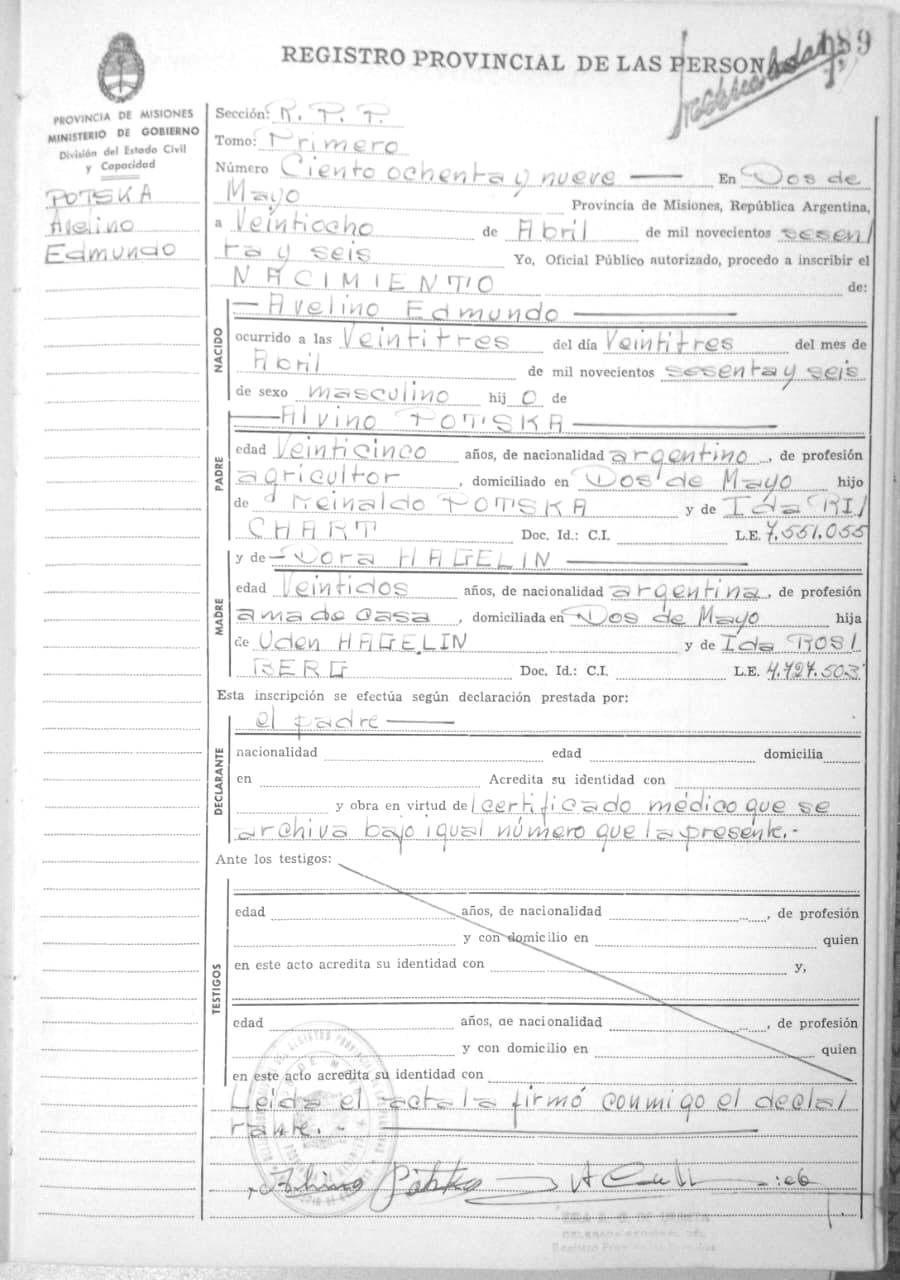 REGISTRO PROVINCIAL DE LAS PERSON
PROVINCIA DE MISIONES
MINISTERIO DE GOBIERNO
División del Estado Civil
y Capacidad
POTSKA
Avelino
Edmundo
Sección: R. P. P.
Tomo: Primero
Número Ciento ochenta y nueve — En Dos de
Mayo Provincia de Misiones, República Argentina,
a Veintiocho de Abril de mil novecientos sesen/
ta y seis Yo, Oficial Público autorizado, procedo a inscribir el
NACIMIENTO de:
NACIDO
— Avelino Edmundo —
ocurrido a las Veintitres del día Veintitres del mes de
Abril de mil novecientos sesenta y seis
de sexo masculino hij o de
PADRE
— Alvino POTSKA —
edad Veinticinco años, de nacionalidad argentino, de profesión
agricultor, domiciliado en Dos de Mayo hijo
de Reinaldo POTSKA y de Ida RI/
CHART Doc. Id.: C.I. L.E. 7.551.055
MADRE
y de — Dora HAGELIN —
edad Veintidos años, de nacionalidad argentina, de profesión
ama de casa, domiciliada en Dos de Mayo hija
de Uden HAGELIN y de Ida ROS/
BERG Doc. Id.: C.I. L.E. 4.727.503
Esta inscripción se efectúa según declaración prestada por:
DECLARANTE
el padre —
nacionalidad edad domicilia
en Acredita su identidad con
y obra en virtud de certificado médico que se
archiva bajo igual número que la presente.-
Ante los testigos:
TESTIGOS
edad años, de nacionalidad , de profesión
y con domicilio en quien
en este acto acredita su identidad con y,
edad años, de nacionalidad , de profesión
y con domicilio en quien
en este acto acredita su identidad con
Leida el acta la firmó conmigo el decla/
rante. - —